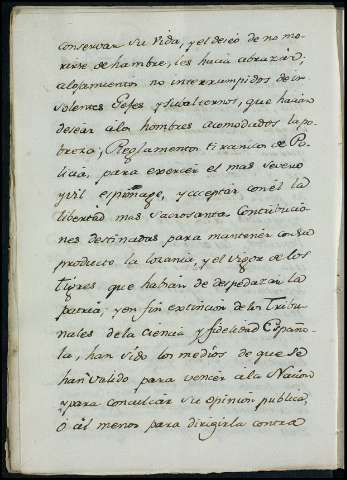 conservar su vida, y el deseo de no mo-
rirse de hambre, les hacia abrazar;
alojamientos no interrumpidos de in-
solentes Gefes y subalternos, que hacian
desear a los hombres acomodados la po-
breza; Reglamentos tiranicos de Po-
licia, para exercer el mas severo
y vil espionage, y acceptar con el la
libertad mas sacrosanta. Contribucio-
nes destinadas para mantener con su
producto la lozania, y el vigor de los
Tigres que habian de despedazar la
patria; y en fin extincion de los Tribu-
nales de la Ciencia y fidelidad Españo-
la, han sido los medios de que se
han valido para vencer a la Nacion
y para conculcar su opinion publica,
ó al menos para dirigirla contra